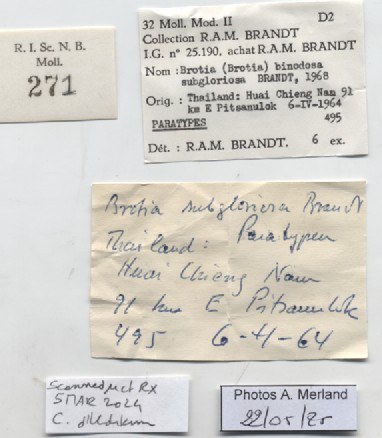 R. I. Sc. N. B.
Moll.
271
32 Moll. Mod. II D2
Collection R.A.M. BRANDT
I.G. n° 25.190, achat R.A.M. BRANDT
Nom : Brotia (Brotia) binodosa
subgloriosa BRANDT, 1968
Orig. : Thailand: Huai Chieng Nam 91
km E Pitsanulok 6-IV-1964
PARATYPES 495
Dét. : R.A.M. BRANDT. 6 ex.
Brotia subgloriosa Brandt
Thailand: Paratypen
Huai Chieng Nam
91 km E Pitsanulok
495 6-4-64
Scanned µct RX
5 MAR 2024
C.
Photos A. Merland
22/05/25